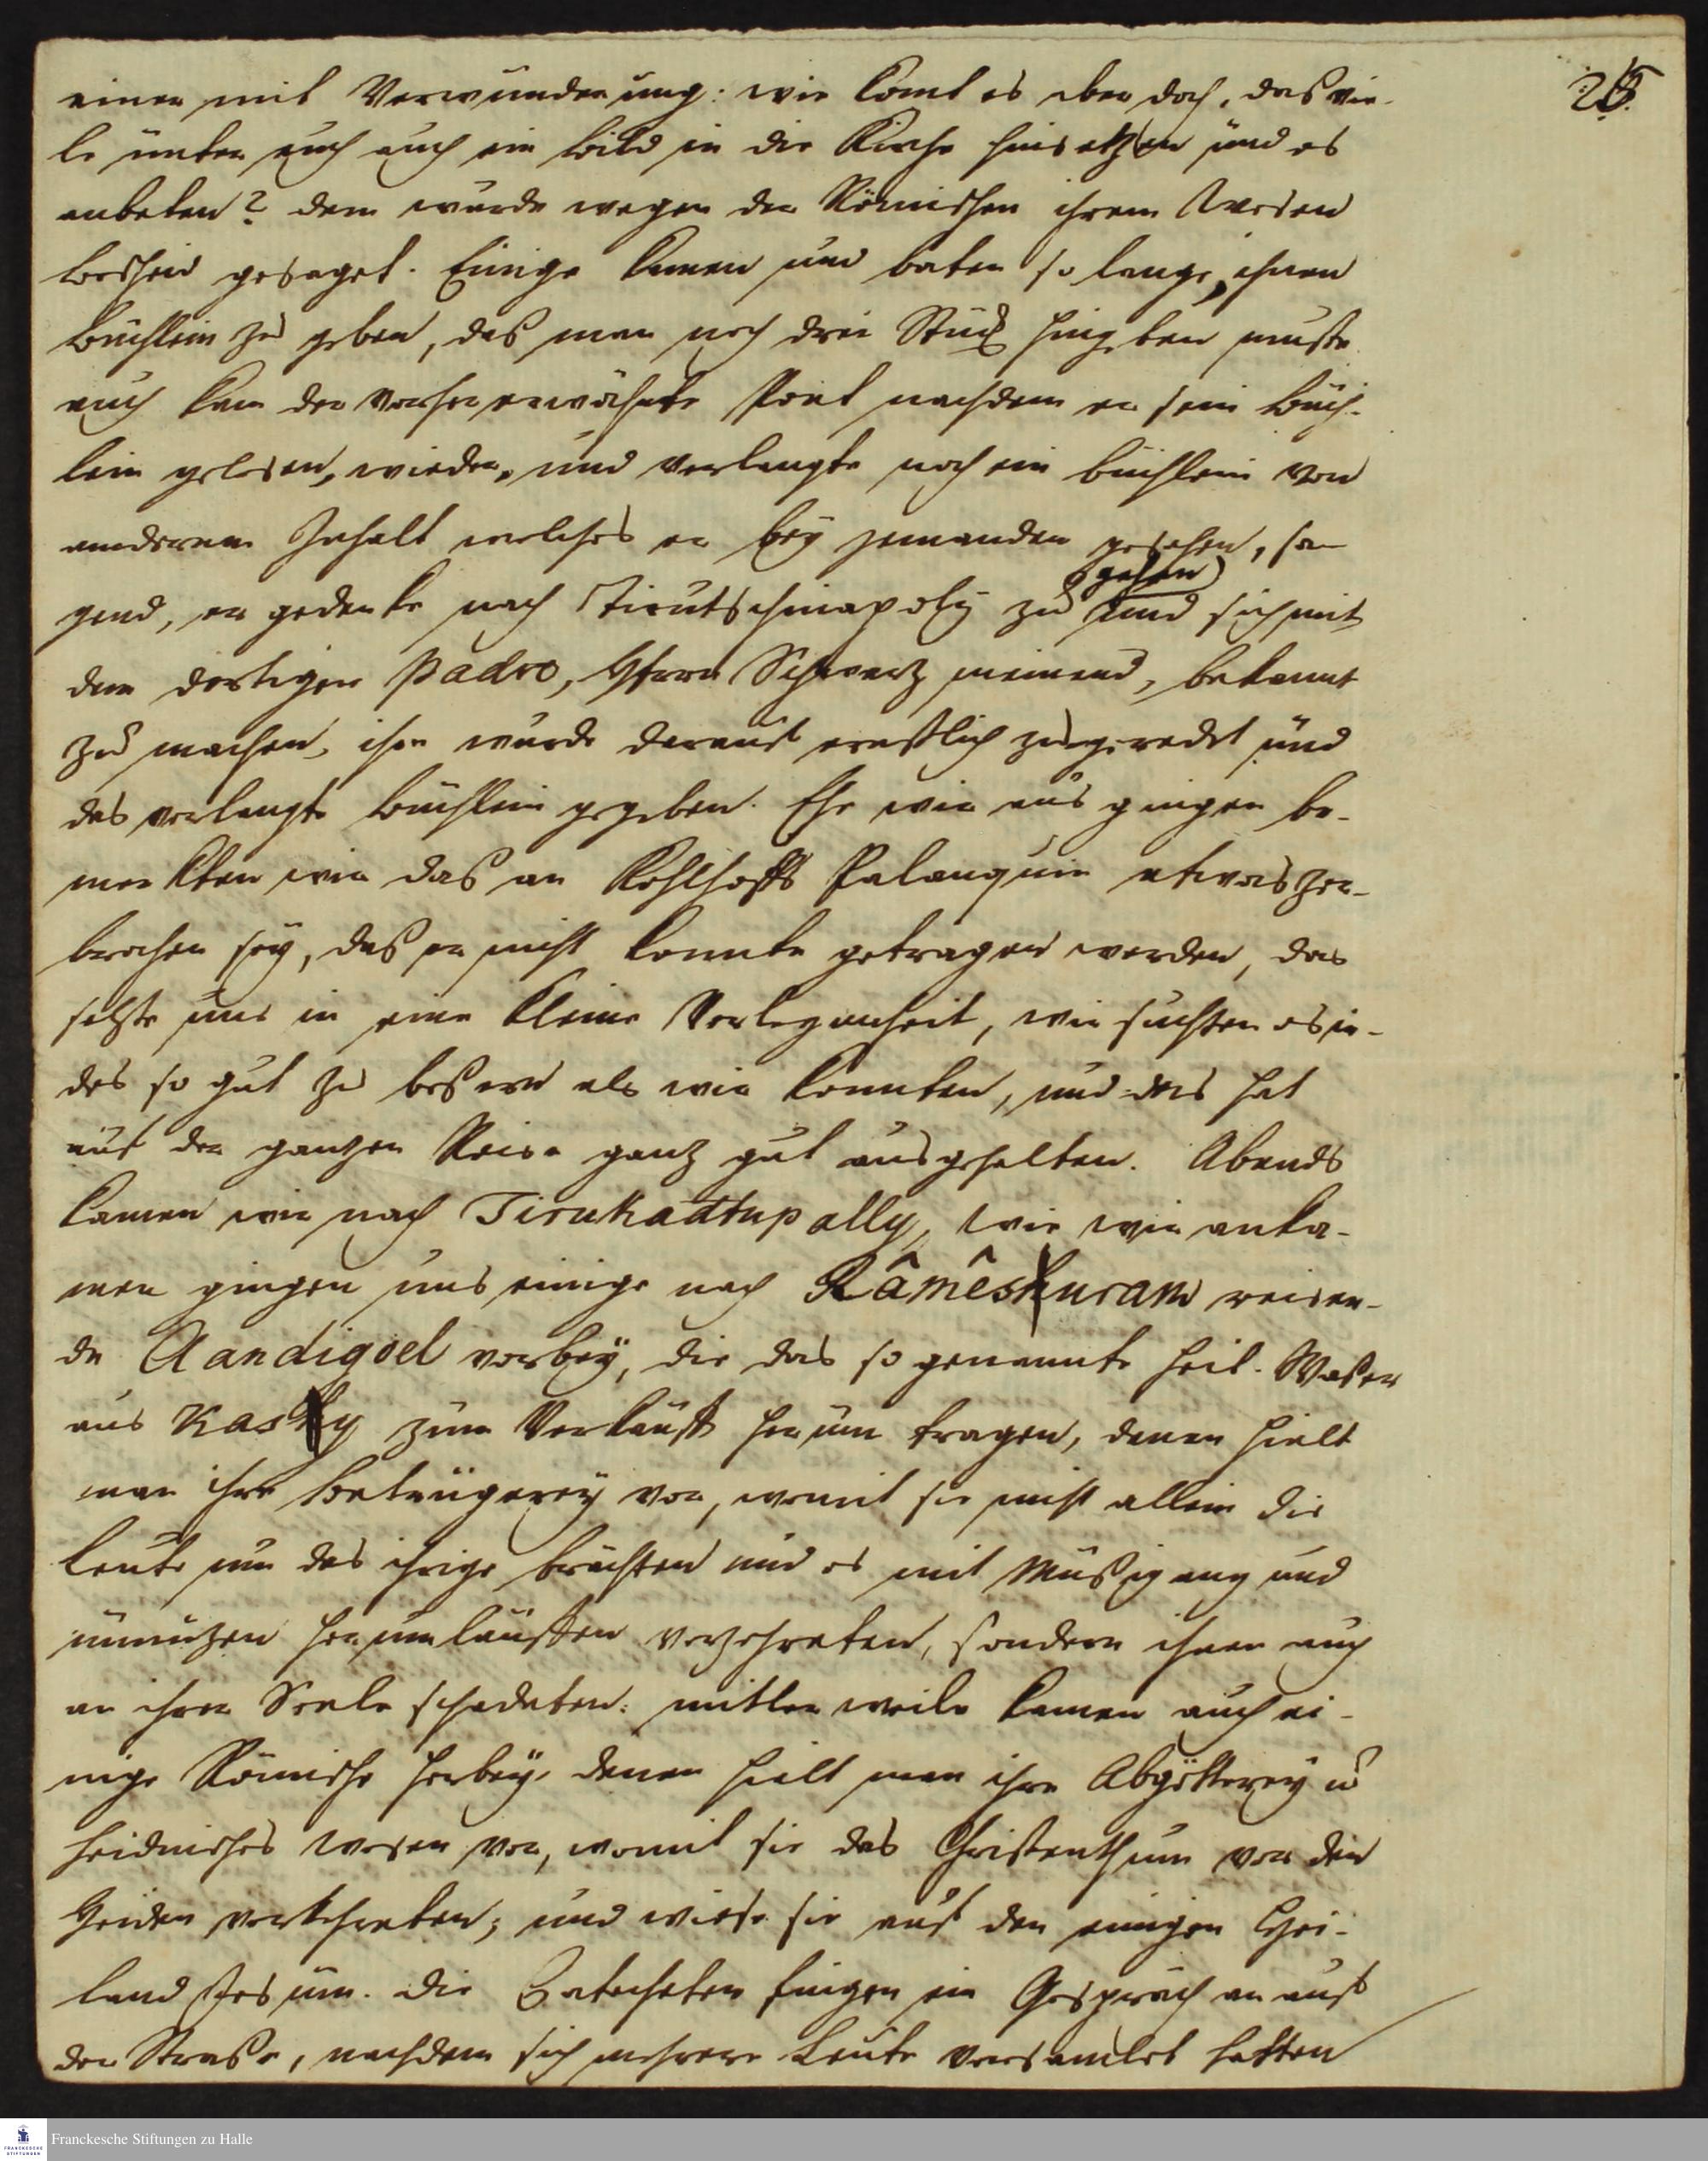 26.
einer mit Verwunderung: wie komt es aber doch, daß vie-
le unter euch auch ein Bild in die Kirche hinsetzen und es
anbeten? dem wurde wegen der Römischen ihrem Wesen
Bescheid gesaget. Einige kamen und baten so lange, ihnen
Büchlein zu geben, daß man noch drei Stück hingeben muste
auch kam der vorher erwähnte Poet nachdem er sein Büch-
lein gelesen, wieder, und verlangte noch ein Büchlein von
anderem Inhalt welches er bey jemanden gesehen, sa-
gend, er gedenke nach Tirutschinapoly zu gehen und sich mit
dem dortigen Padro, Herrn Schwarz meinend, bekannt
zu machen, ihm wurde darauf ernstlich zugeredet und
das verlangte Büchlein gegeben. Ehe wir aus gingen be-
merkten wir daß an Kohlhoffs Palanquin etwas zer-
brochen sey, daß er nicht konnte getragen werden, das
setzte uns in eine kleine Verlegenheit, wir suchten es in-
des so gut zu beßern als wir konnten, und das hat
auf der ganzen Reise ganz gut ausgehalten. Abends
kamen wir nach Tirukadtupally, wie wir anka-
men gingen uns einige nach Râmêsuram reisen-
de Aandigoel vorbey, die das so genannte heil. Waßer
aus Kasy zum Verkauff herum tragen, denen hielt
man ihre Betrügerey vor, womit sie nicht allein die
Leute um das ihrige brächten und es mit Müßigang und
unnüzen herumlauffen verzehreten, sondern ihnen auch
an ihrer Seele schadeten: mittler weile kamen auch ei-
nige Römische herbey, denen hielt man ihre Abgötterey u
heidnisches Wesen vor, womit sie das Christenthum vor den
Heiden verkehreten, und wiese sie auf den einigen Hei-
land Jesum. Die Catecheten fingen ein Gespräch an auf
der Straße, nachdem sich mehrere Leute versamlet hatten
Franckesche Stiftungen zu Halle